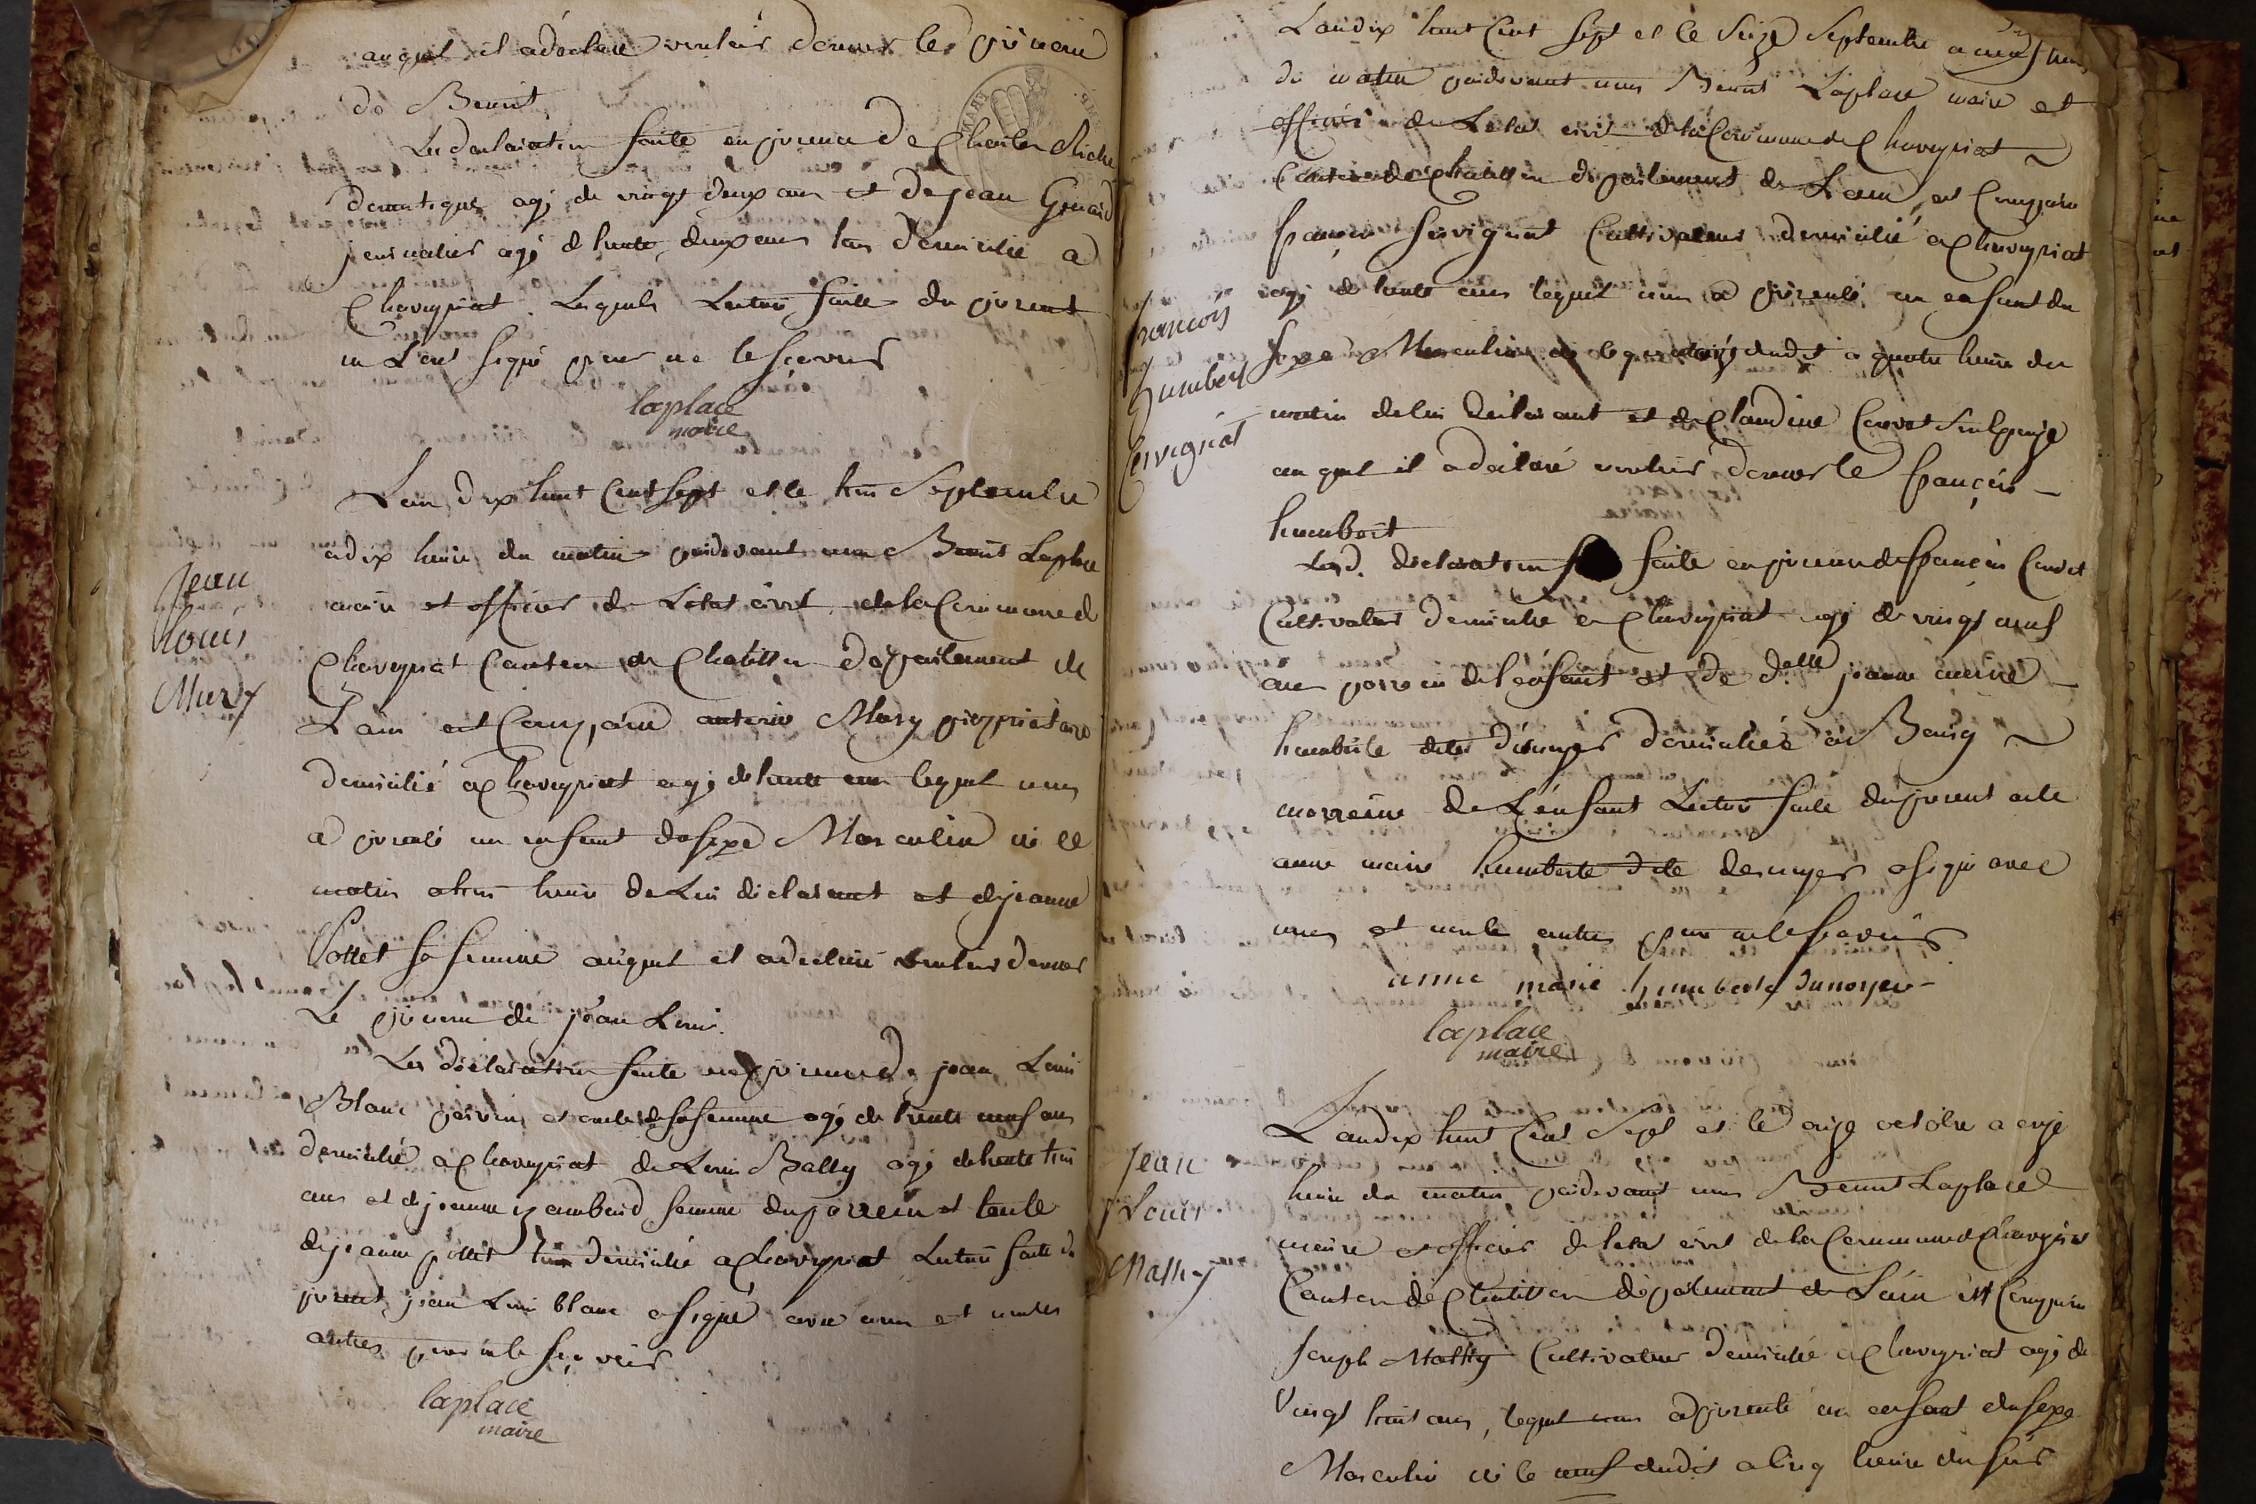 auquel il a déclaré vouloir donner le prénom
de Benoit
Les déclaration faite en présence de Charles
domestique agé de vingt deux ans et de jean
journalier agé de trente deux ans tous domicilié a
Chaveyriat. Lesquels Lecture faite du présent
n'ont signé pour ne le sçavoir
laplace
maire
L'an dix huit Cent Sept et le trois Septembre
Jean
Louis
Mury
a dix heure du matin pardevant nous Benoit Laplace
maire et officier de L'etat civil de la Commune de
Chaveyriat Canton de Chatillon département de
L'ain est Comparu antoine Mury propriétaire
domicilié a Chaveyriat agé de trente ans lequel nous
a présenté un enfant de sexe Masculin né le
matin a trois heure de Lui déclarant et de jeanne
Pottet sa femme auquel il a déclaré vouloir donner
Le prénom de jean Louis.
Les déclaration faite en présence de jean Louis
Blanc parrain et oncle de sa femme agé de trente neuf ans
domicilié a Chaveyriat de Louis Bally agé de trente trois
ans et de jeanne femme du parrein et tante
de jeanne pottet tous domicilié a Chaveyriat Lecture faite du
présent, jean Louis blanc a signé avec nous et non les
autres pour ne le sçavoir
laplace
maire
L'an dix huit Cent Sept et le Seize Septembre a neuf heure
du matin pardevant nous Benoit Laplace maire et
officier de L'etat civil de la Commune de Chaveyriat
Canton de Chatillon département de L'ain, est Comparu
françois Servignat Cultivateur domicilié a Chaveyriat
françois
humbert
Servignat
agé de trente ans lequel nous a présenté un enfant du
sexe Masculin né le dudit a quatre heure du
matin de lui déclarant et de Claudine Cavet
auquel il a déclaré vouloir donner le françois
humbert
Lesd. déclaration faite en présence de françois Cavet
Cultivateur domicilié a Chaveyriat agé de vingt neuf
ans parrein de l'enfant et de d.elle jeanne marie
humberte domiciliée à Bourg
marreine de L'enfant Lecture faite du présent acte
anne marie humberte dite desnoyer a signé avec
nous et non les autres pour ne le sçavoir
anne marie humberte dunoyer
laplace
maire
L'an dix huit Cent Sept et le onze octobre a onze
Jean
Louis
Mathy
heure du matin pardevant nous Benoit Laplace
maire et officier de letat civil de la Commune de Chaveyriat
Canton de Chatillon département de L'ain est Comparu
joseph Mathy Cultivateur domicilié a Chaveyriat agé de
vingt huit ans, lequel nous a présenté un enfant du sexe
Masculin né le neuf dudit a Cinq heure du soir